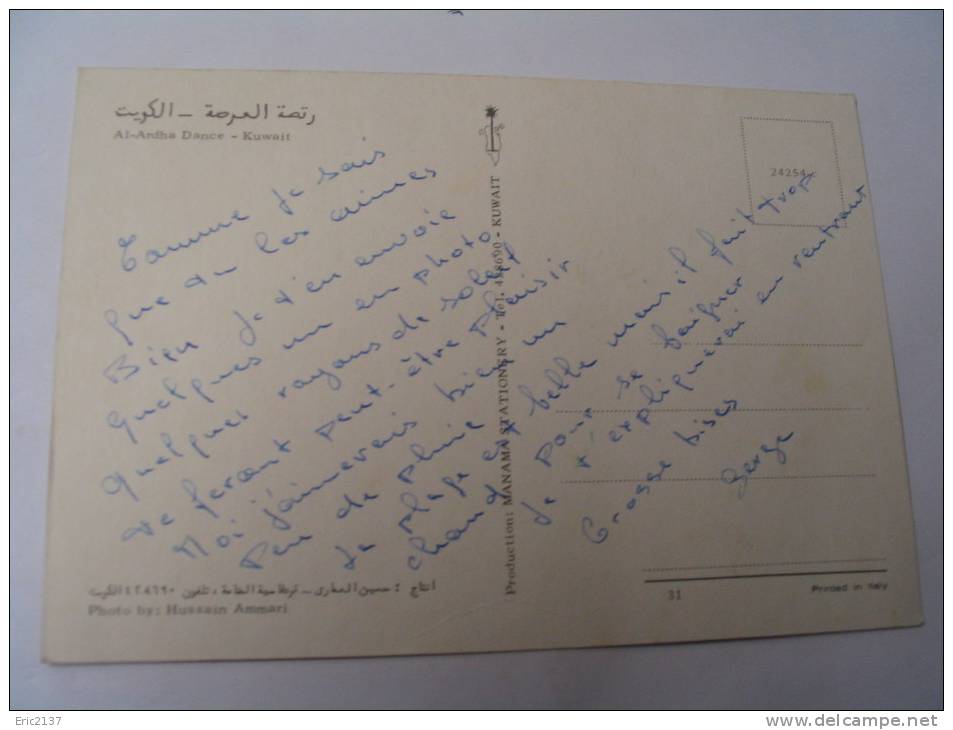 رقصة العرضة - الكويت
Al-Ardha Dance - Kuwait
Comme je sais
que tu les aimes
Bien je t'en envoie
quelques un en photo
quelques rayons de soleil
te feront peut-être plaisir
Moi j'aimerais bien un
peu de pluie
la plage est belle mais il fait trop
chaud pour se baigner
je t'expliquerai en rentrant
Grosse bises
Serge
Production: MANAMA STATIONERY - Tel. 428690 - KUWAIT
24254
انتاج : حسين العماري - تلفون ٤٢٨٦٩٠ الكويت
Photo by: Hussain Ammari
31
Printed in Italy
Eric2137
www.delcampe.net